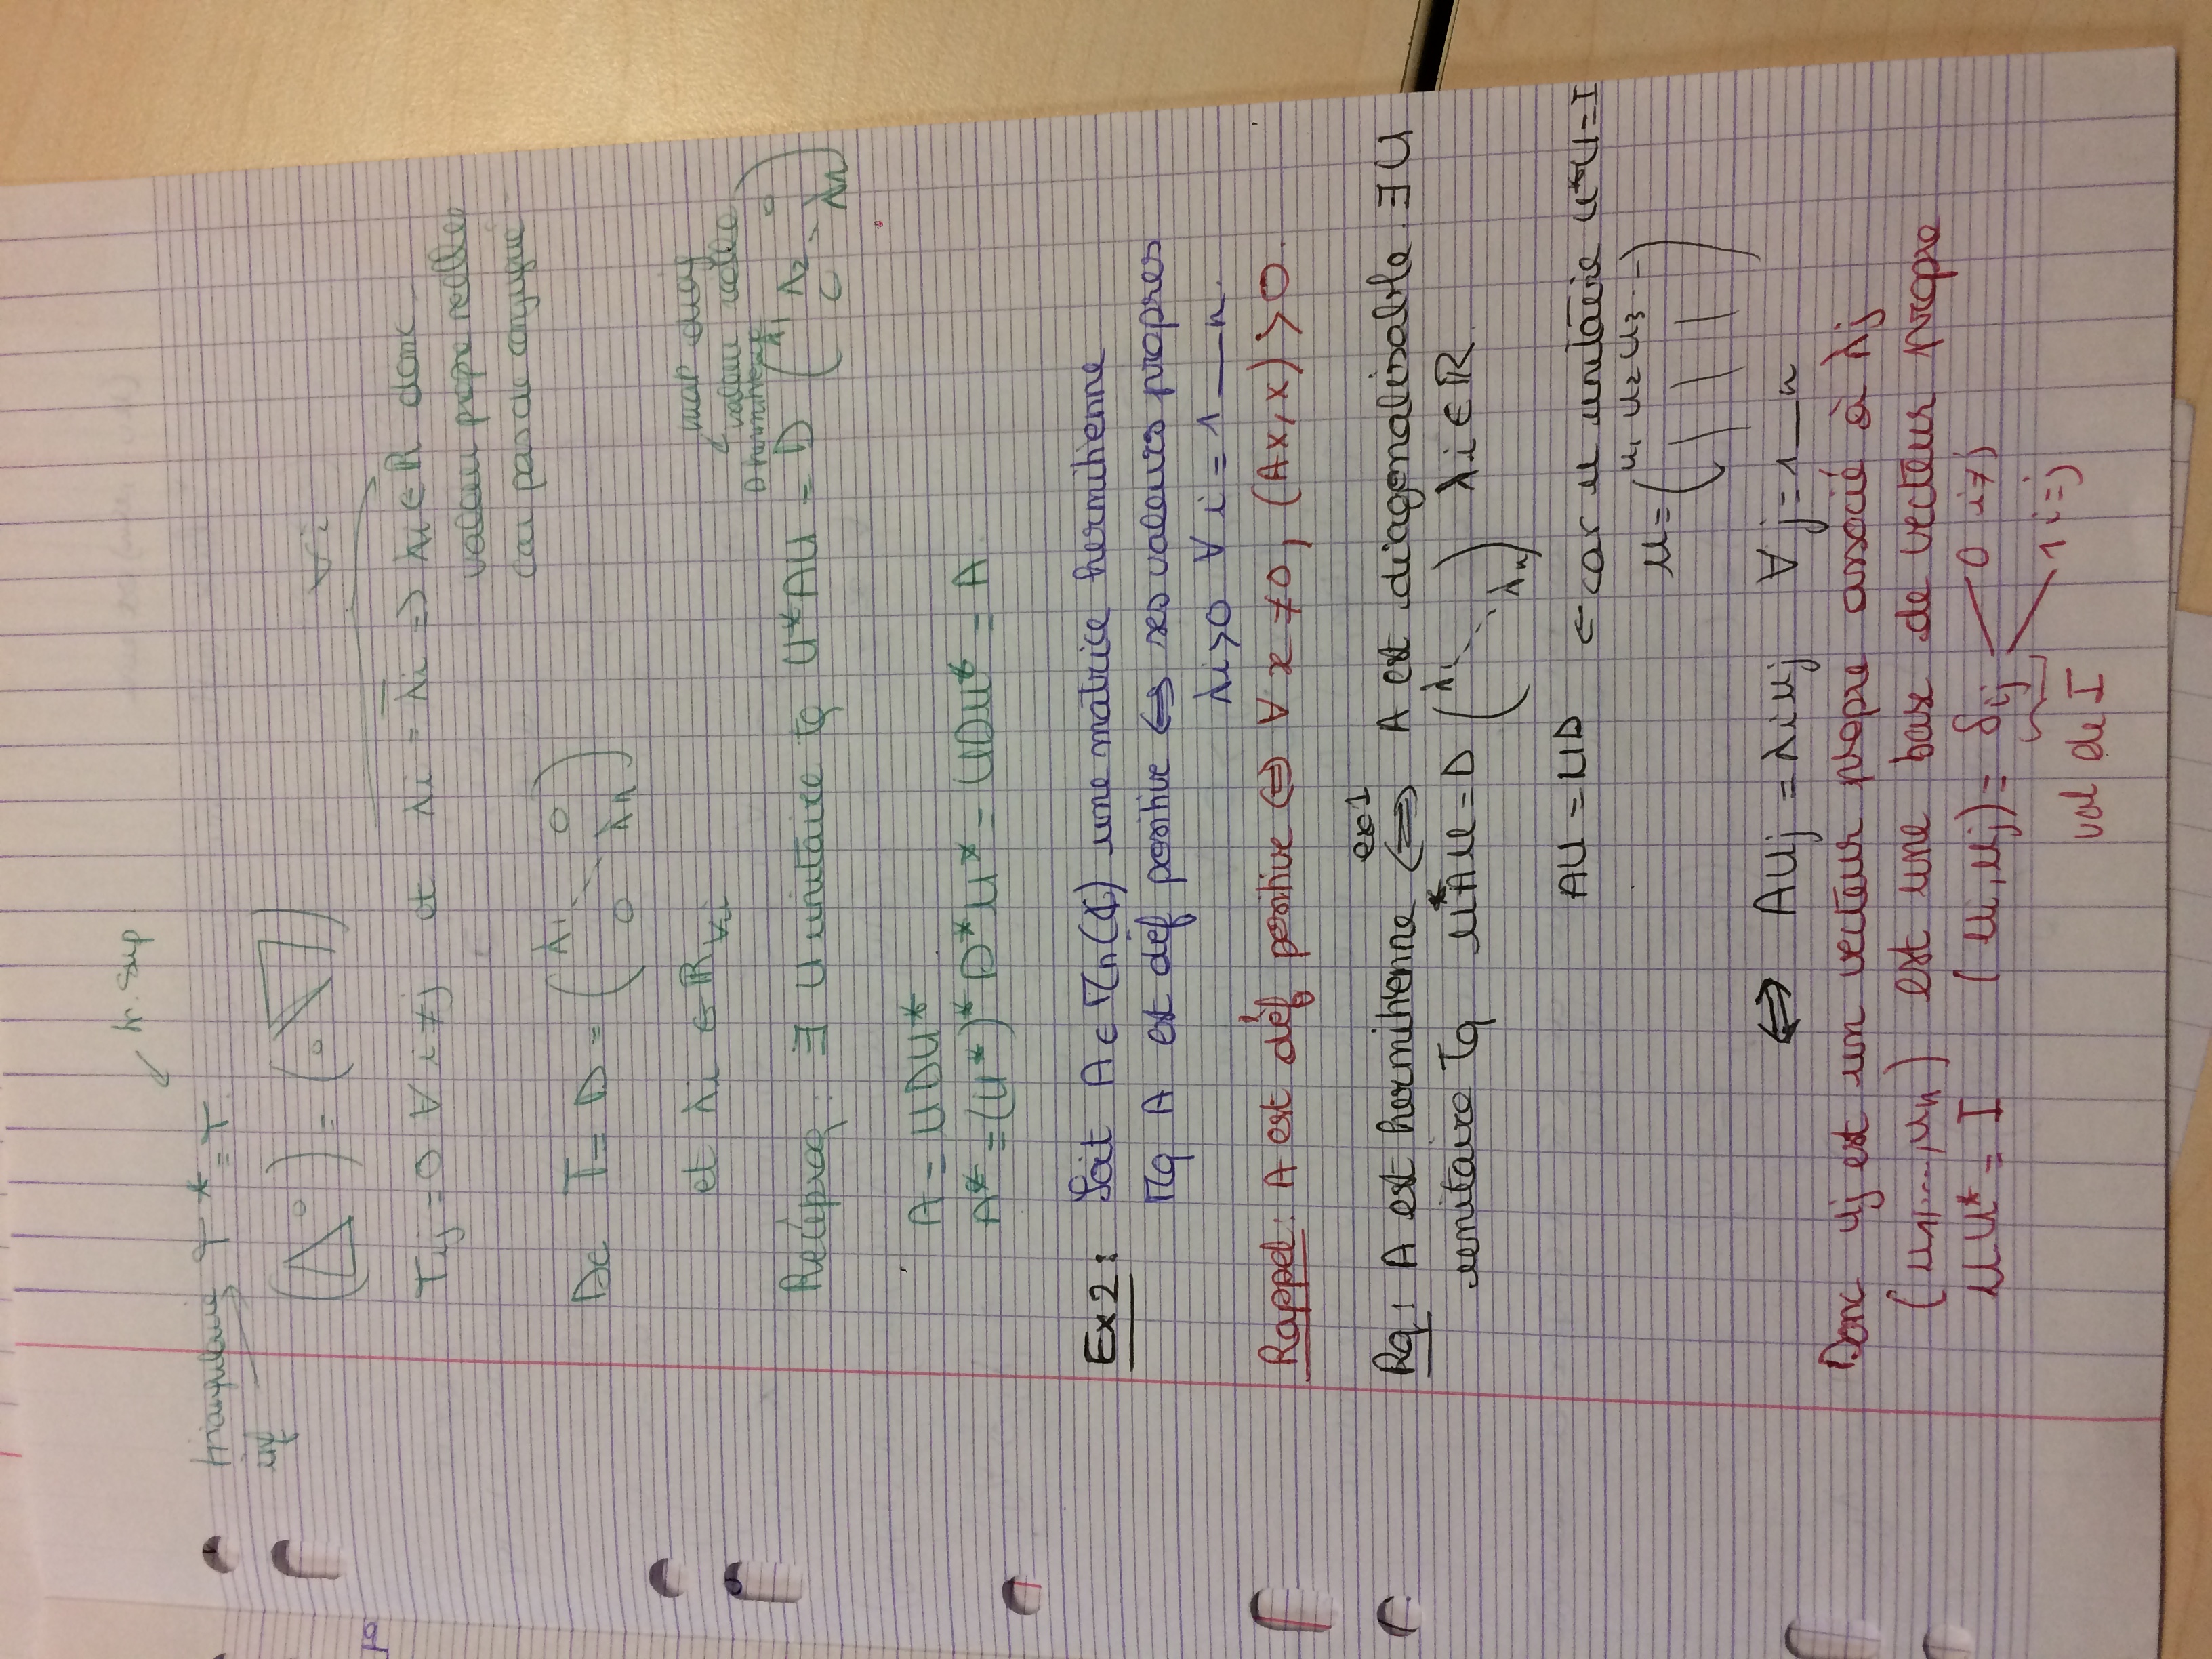 tr. sup
triangulaire T* = T
inf
( 0 ) = ( 0 )
∀i
Tij = 0 ∀ i ≠ j et λi = λ̄i => λi ∈ ℝ donc
valeur propre réelles
car pas de conjugué
Dc T = D = ( λ1 0
0 λn )
et λi ∈ ℝ ∀i
mat diag
valeur réelle
D hermitienne
Réciproq. ∃ U unitaire tq U*AU = D ( λ1 λ2 0
0 λn )
A = UDU*
A* = (U*)* D* U* = UDU* = A
Ex 2 : Soit A ∈ Mn(ℂ) une matrice hermitienne
Mq A est déf positive <=> ses valeurs propres
λi > 0 ∀ i = 1 _ n.
Rappel : A est déf positive <=> ∀ x ≠ 0, (Ax, x) > 0.
ex 1
Rq : A est hermitienne <=> A est diagonalisable. ∃ U
unitaire Tq U*AU = D ( λ1
λn ) λi ∈ ℝ.
AU = UD ← car U unitaire U*U = I
U = ( u1 u2 u3 ... )
<=> AUj = λi uj ∀ j = 1 _ n
Donc uj est un vecteur propre associé à λj
(u1, ..., un) est une base de vecteur propre
UU* = I (ui, uj) = δij 0 i ≠ j
1 i = j
val de I